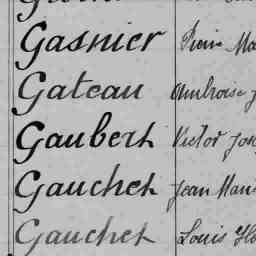 Gasnier Pierre Ma
Gateau Ambroise J
Gaubert Victor Jos
Gauchet Jean Mari
Gauchet Louis Flo